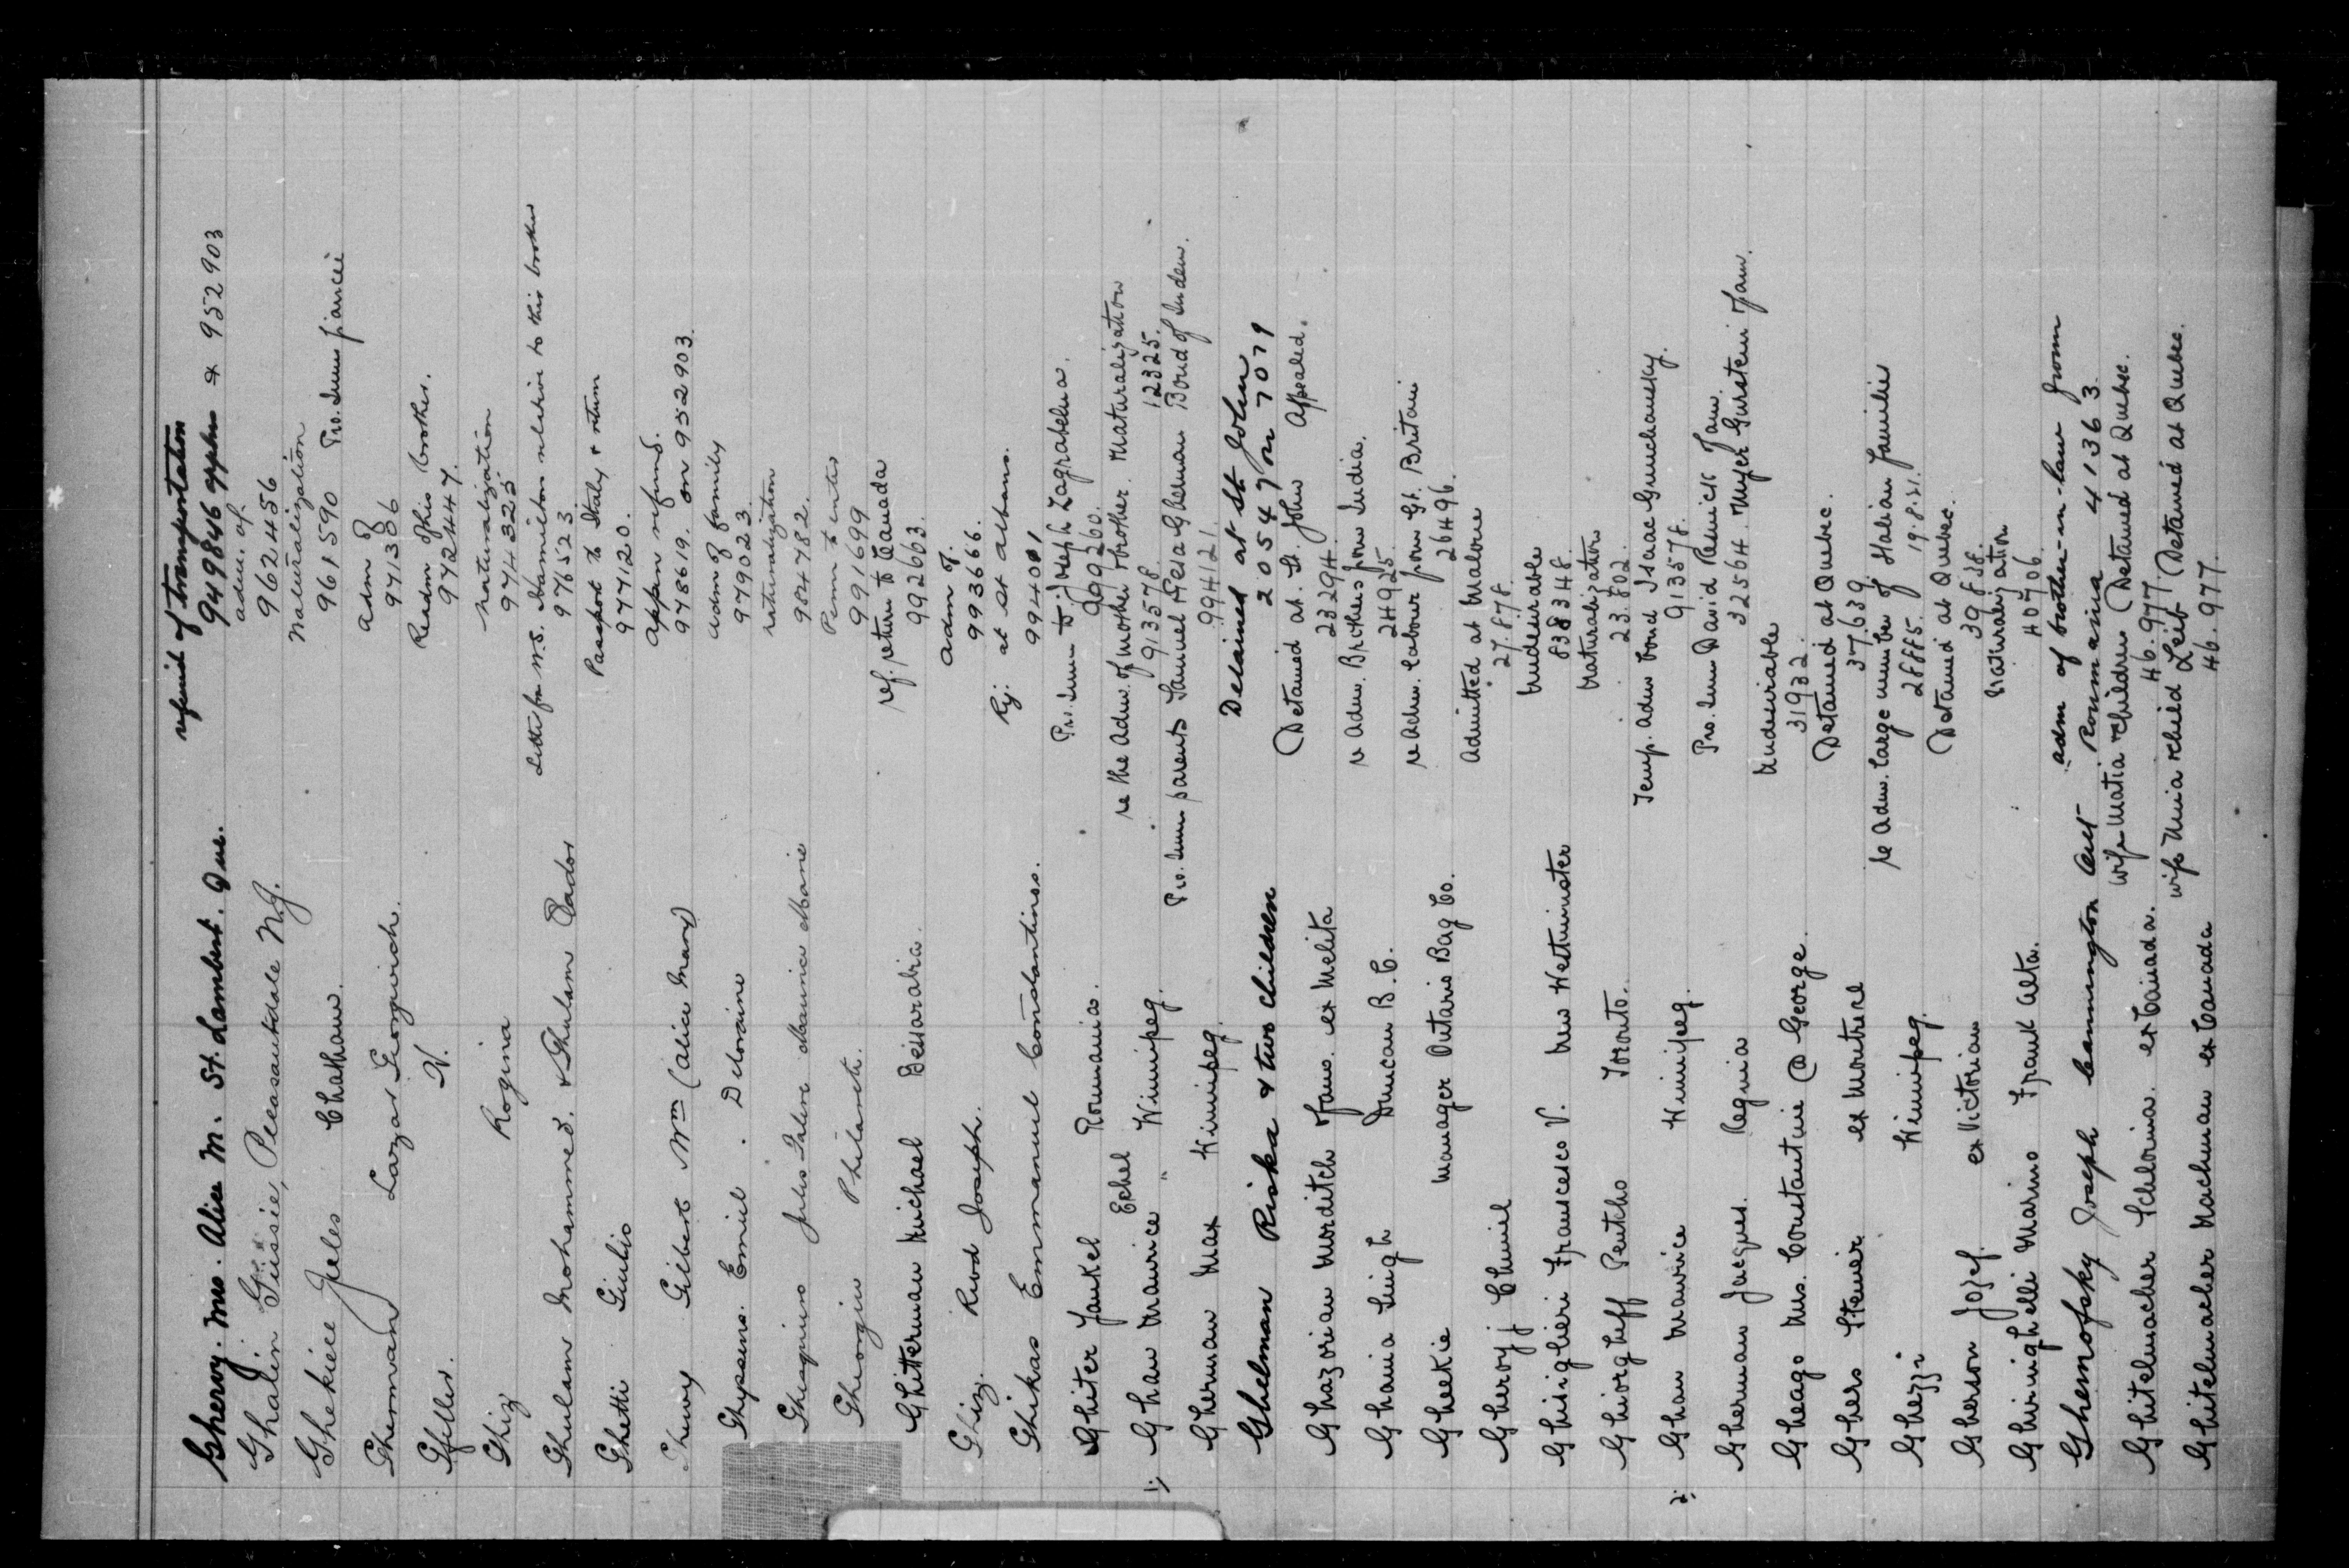 Gheroy. Mrs. Alice M. St. Lambert. Que. refund of transportation
949846 appln & 952903
Ghalin Gussie, Pleasantdale N.J. adm. of.
962456
Ghekiere Jules Chatham. Naturalization
961590 Pro. Imm fiancée
Ghermvan Lazar Georgwich. adm of
971386
Gfeller. V. Readm of his brother.
972447.
Ghiz Rogina naturalization
974325
Ghulam Mohammed. & Ghulam Letter fm W.S. Hamilton relative to his brother
976523
Ghetti Giulio Passport to Italy & return
977120.
Gilbert Wm (alice Mary) appn refund.
978619. on 952903.
Ghyssens. Emiel. Deloraine adm of family
979023.
Jules Maurice Marie naturalization
984782.
Gheorgiu Philaret. Perm to enter
991699
Ghitterman Michael Bessarabia. ref. return to Canada
992663.
Ghiz. Rood Joseph. adm of.
993666.
Ghikas Emmanuel Constantinos. Rej: at St Albans.
994001
Ghiter Yankel Roumania. Pro. Imm to Joseph Zagrabelna.
999260.
1; Ghan Maurice Echel " Winnipeg. re the Adm. of mother & brother. Naturalization
913578. 12325.
Gherman Max Winnipeg. Pro. Imm parents Samuel & Gherman Bond of Indem.
99412!
Ghelman Riska & two children Detained at St John
20547 on 7079
Ghazorian Morditch & fam. ex Melita Detained at St. John Appealed.
23294.
Ghania Singh Duncan B.C. re Adm. Brothers from India.
24925.
Gheekie Manager Ontario Bag Co. re Adm. labour from Gt. Britain
26496.
Gheroy j Chuniel Admitted at Malone
27.878.
Ghisiglieri Francesco V. New Westminster Undesirable
838348.
Ghiorghieff Pentcho Toronto. Naturalization
23.802.
2; Ghan Maurice Winnipeg. Temp. Adm bond Isaac Grunchansky.
913578.
Gherman Jacques. Regina Pro. Imm David Resnick & fam.
32564. Meyer Gurstein & fam.
Gheago Mrs. Constantine @ George. Undesirable
31932.
Ghers Steiner ex Montreal Detained at Quebec.
37.639.
Ghezzi Winnipeg. re Adm. large number of Italian families
28885. 19.8.21.
Gherson Jozef. ex Victorian Detained at Quebec.
39838.
Ghiringhelli Marino Frank Alta. Naturalization
40906.
Ghemofsky Joseph Cannington Ont adm of brother-in-law from
Roumania 41363.
Ghitelmacher Schlorina. ex Canada. wife Matia & children Detained at Quebec.
46.977.
Ghitelmacher Nachman ex Canada wife Unia & child Leib Detained at Quebec.
46.977.